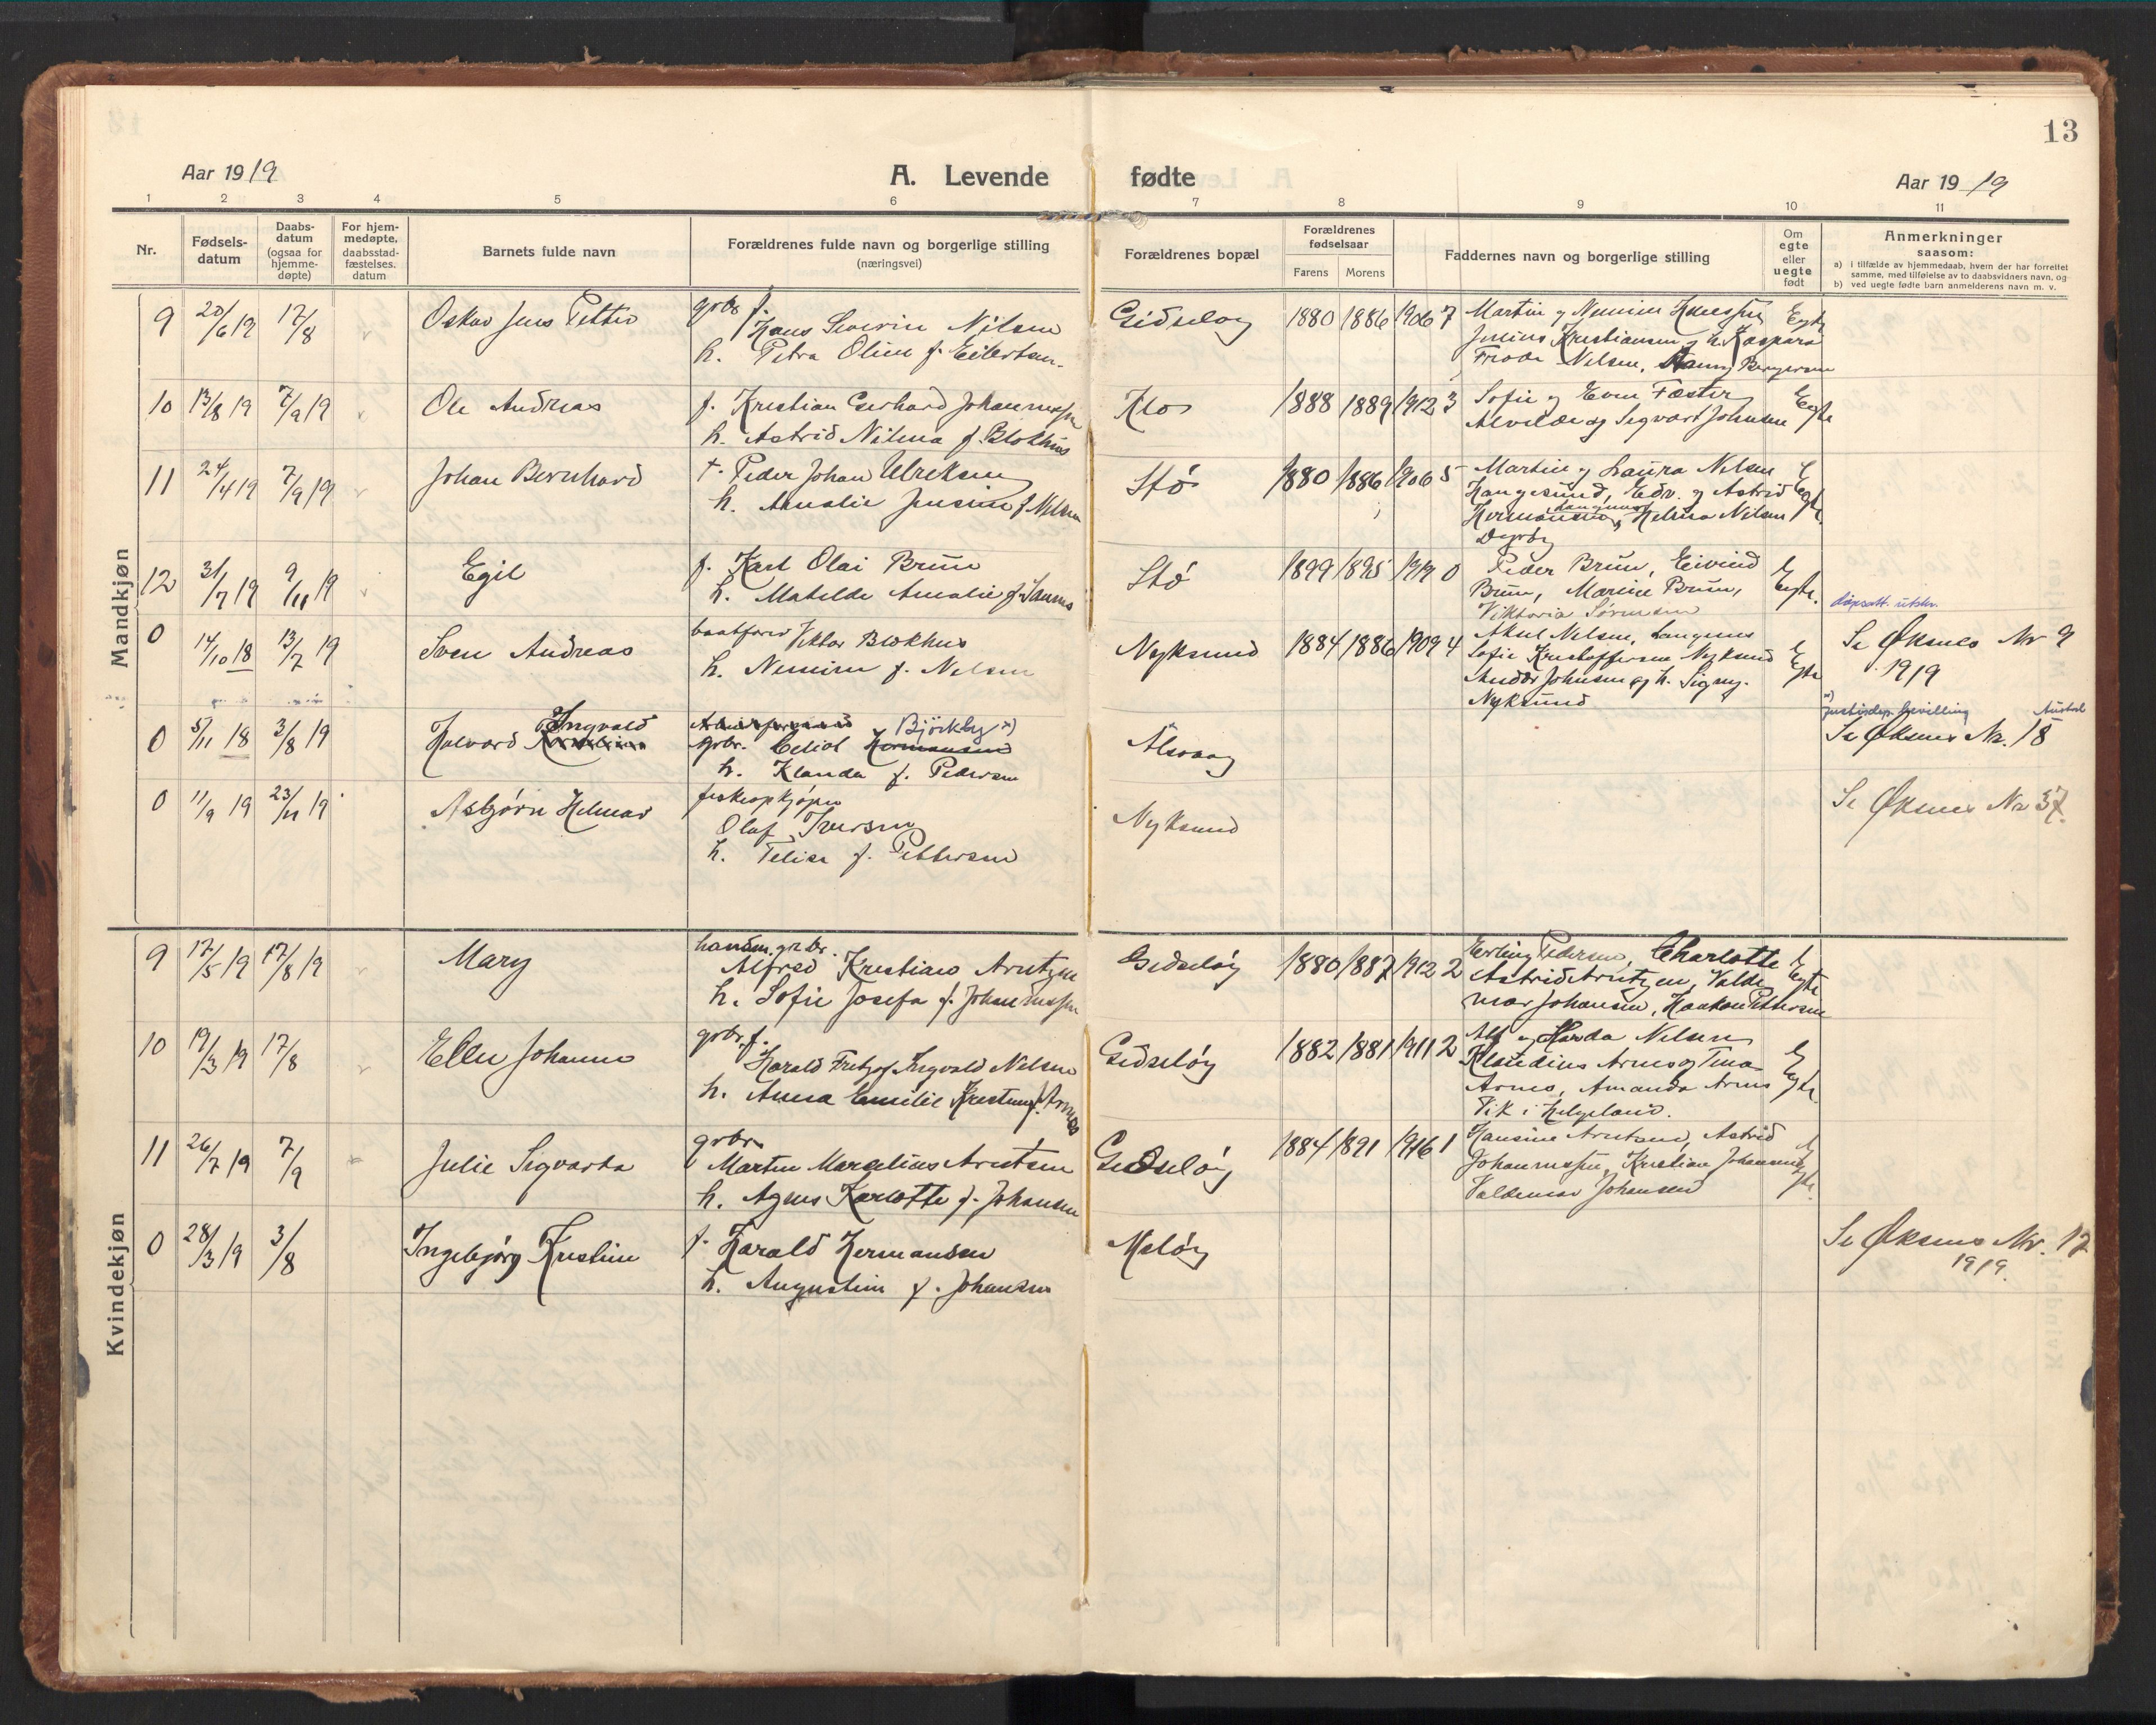 13
Aar 1919
A. Levende fødte
Aar 1919
1 2 3 4 5 6 7 8 9 10 11
Nr.
Fødsels-
datum
Daabs-
datum
(ogsaa for
hjemme-
døpte)
For hjem-
medøpte,
daabsstad-
fæstelses.
datum
Barnets fulde navn
Forældrenes fulde navn og borgerlige stilling
(næringsvei)
Forældrenes bopæl
Forældrenes
fødselsaar
Farens Morens
Faddernes navn og borgerlige stilling
Om
egte
eller
uegte
født
Anmerkninger
saasom:
a) i tilfælde av hjemmedaab, hvem der har forrettet
samme, med tilføielse av to daabsvidners navn, og
b) ved uegte fødte barn anmelderens navn m. v.
Mandkjøn
9 20/6 19 17/8 Oskar Jens Petter
grbr f.
Hans Severin Nilsen
h. Petra Oline f. Eilertsen
Gidsløy 1880 1886 1906 7
Martin og
Julius Kristiansen og h. Kaspara
Nilsen, Bergersen
Egte
10 13/8 19 7/9 19 Ole Andreas
f. Kristian Gerhard Johannessen
h. Astrid Nilma f. Blokhus
Klo 1888 1889 1912 3
Sofie og Even Fæster
Alvilde og Sigvart Johnsen
Egte
11 24/4 19 7/9 19 Johan Bernhard
f. Peder Johan Ulreksen
h. Amalie Jensine f. Nilsen
Stø 1880 1886 1906 5
Martin og Laura Nilsen
Haugesund, Edv. og Astrid
Hermansen, Helma Nilsen
Egte
12 31/7 19 9/11 19 Egil
f. Karl Olai Brun
h. Matilde Amalie f.
Stø 1899 1895 1919 0
Peder Brun, Eivind
Brun, Marine Brun,
Viktoria Sørensen
Egte.
0 14/10 18 13/7 19 Sven Andreas
baatfører Viktor Blokhus
h. f. Nilsen
Nyksund 1884 1886 1909 4
Nilsen, Langenes
Sofie Kristoffersen Nyksund
Johnsen og h. Signy.
Nyksund
Egte
dåpsatt. utskr.
Se Øksnes Nr 9
1919
0 5/11 18 3/8 19 Halvard Ingvald
Björkby x)
grbr. Hermansen
h. Klanda f. Pedersen
Alsvaag
x)
justisdep. bevilling
Se Øksnes Nr. 18
0 11/9 19 23/11 19 Asbjørn Helmar
fiskeopkjøper
Olaf Iversen
h. f. Pettersen
Nyksund
Se Øksnes Nr 37.
Kvindekjøn
9 17/5 19 17/8 19 Mary
handm. grbr.
Alfred Kristian Arntzen
h. Sofie Josefa f. Johannessen
Gidsløy 1880 1887 1912 2
Erling Pedersen, Charlotte
Astrid Arntzen, Valde
mar Johansen, Haakon Pettersen
Egte
10 19/3 19 17/8 Ellen Johanne
grbr. f.
Harald Fritjof Ingvald Nilsen
h. Anna Emilie f. Arnes
Gidsløy 1882 1881 1911 2
Alf og Harda Nilsen
Klaudius Arnes og Tina
Arnes, Amanda Arnes
Vik i Helgeland.
Egte.
11 26/7 19 7/9 Julie Sigvarda
grbr.
Martin Marselius Arntsen
h. Agnes Karlotte f. Johansen
Gidsløy 1884 1891 1916 1
Hansine Arntsen, Astrid
Johannessen, Kristian Johansen
Valdemar Johansen
Egte.
0 28/3 19 3/8 Ingebjørg Kristine
f. Harald Hermansen
h. Augustine f. Johansen
Meløy
Se Øksnes Nr. 12
1919.